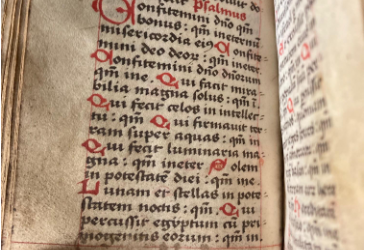 psalmus
Confitemini dño qm̃
bonus : qm̃ ineternũ
misericordia eiꝰ Confite
mini deo deoꝝ : qm̃ ineter
Confitemini dño dñorum
qm̃ ine. Qui facit mira
bilia magna solus : qm̃ ĩ.
Qui fecit celos in intellec
tu : qm̃ Qui firmauit ter
ram super aquas : qm̃ in
Qui fecit luminaria ma
gna : qm̃ ineter Solem
in potestatẽ diei : qm̃ ine.
Lunam et stellas in pote
statem noctis : qm̃. Qui
percussit egyptum cũ pri
mogenitis eorum : qm̃ in